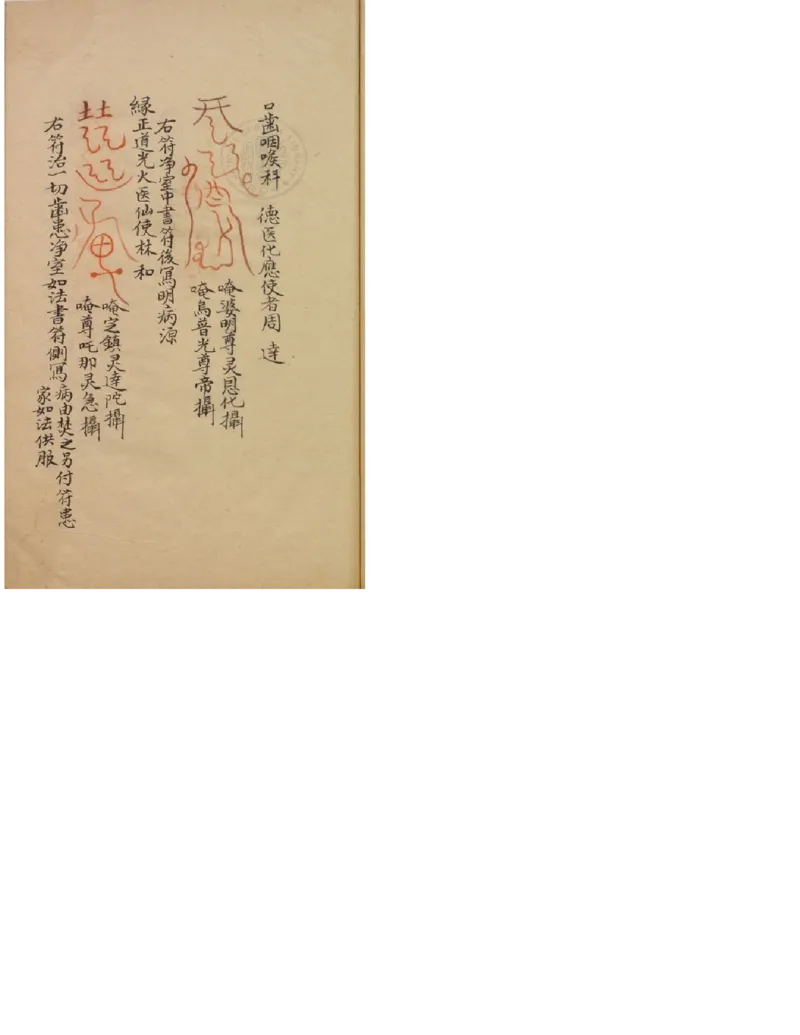 口齒咽喉科　德医化應使者周　達
唵婆明尊灵恩化攝
唵烏普光尊帝攝
右符净室中書符後寫明病源
緣正道光火医仙使林　和
唵定鎮灵達陀攝
唵尊吒那灵急攝
右符治一切齒患净室如法書符側寫病由焚之另付符患
家如法供服